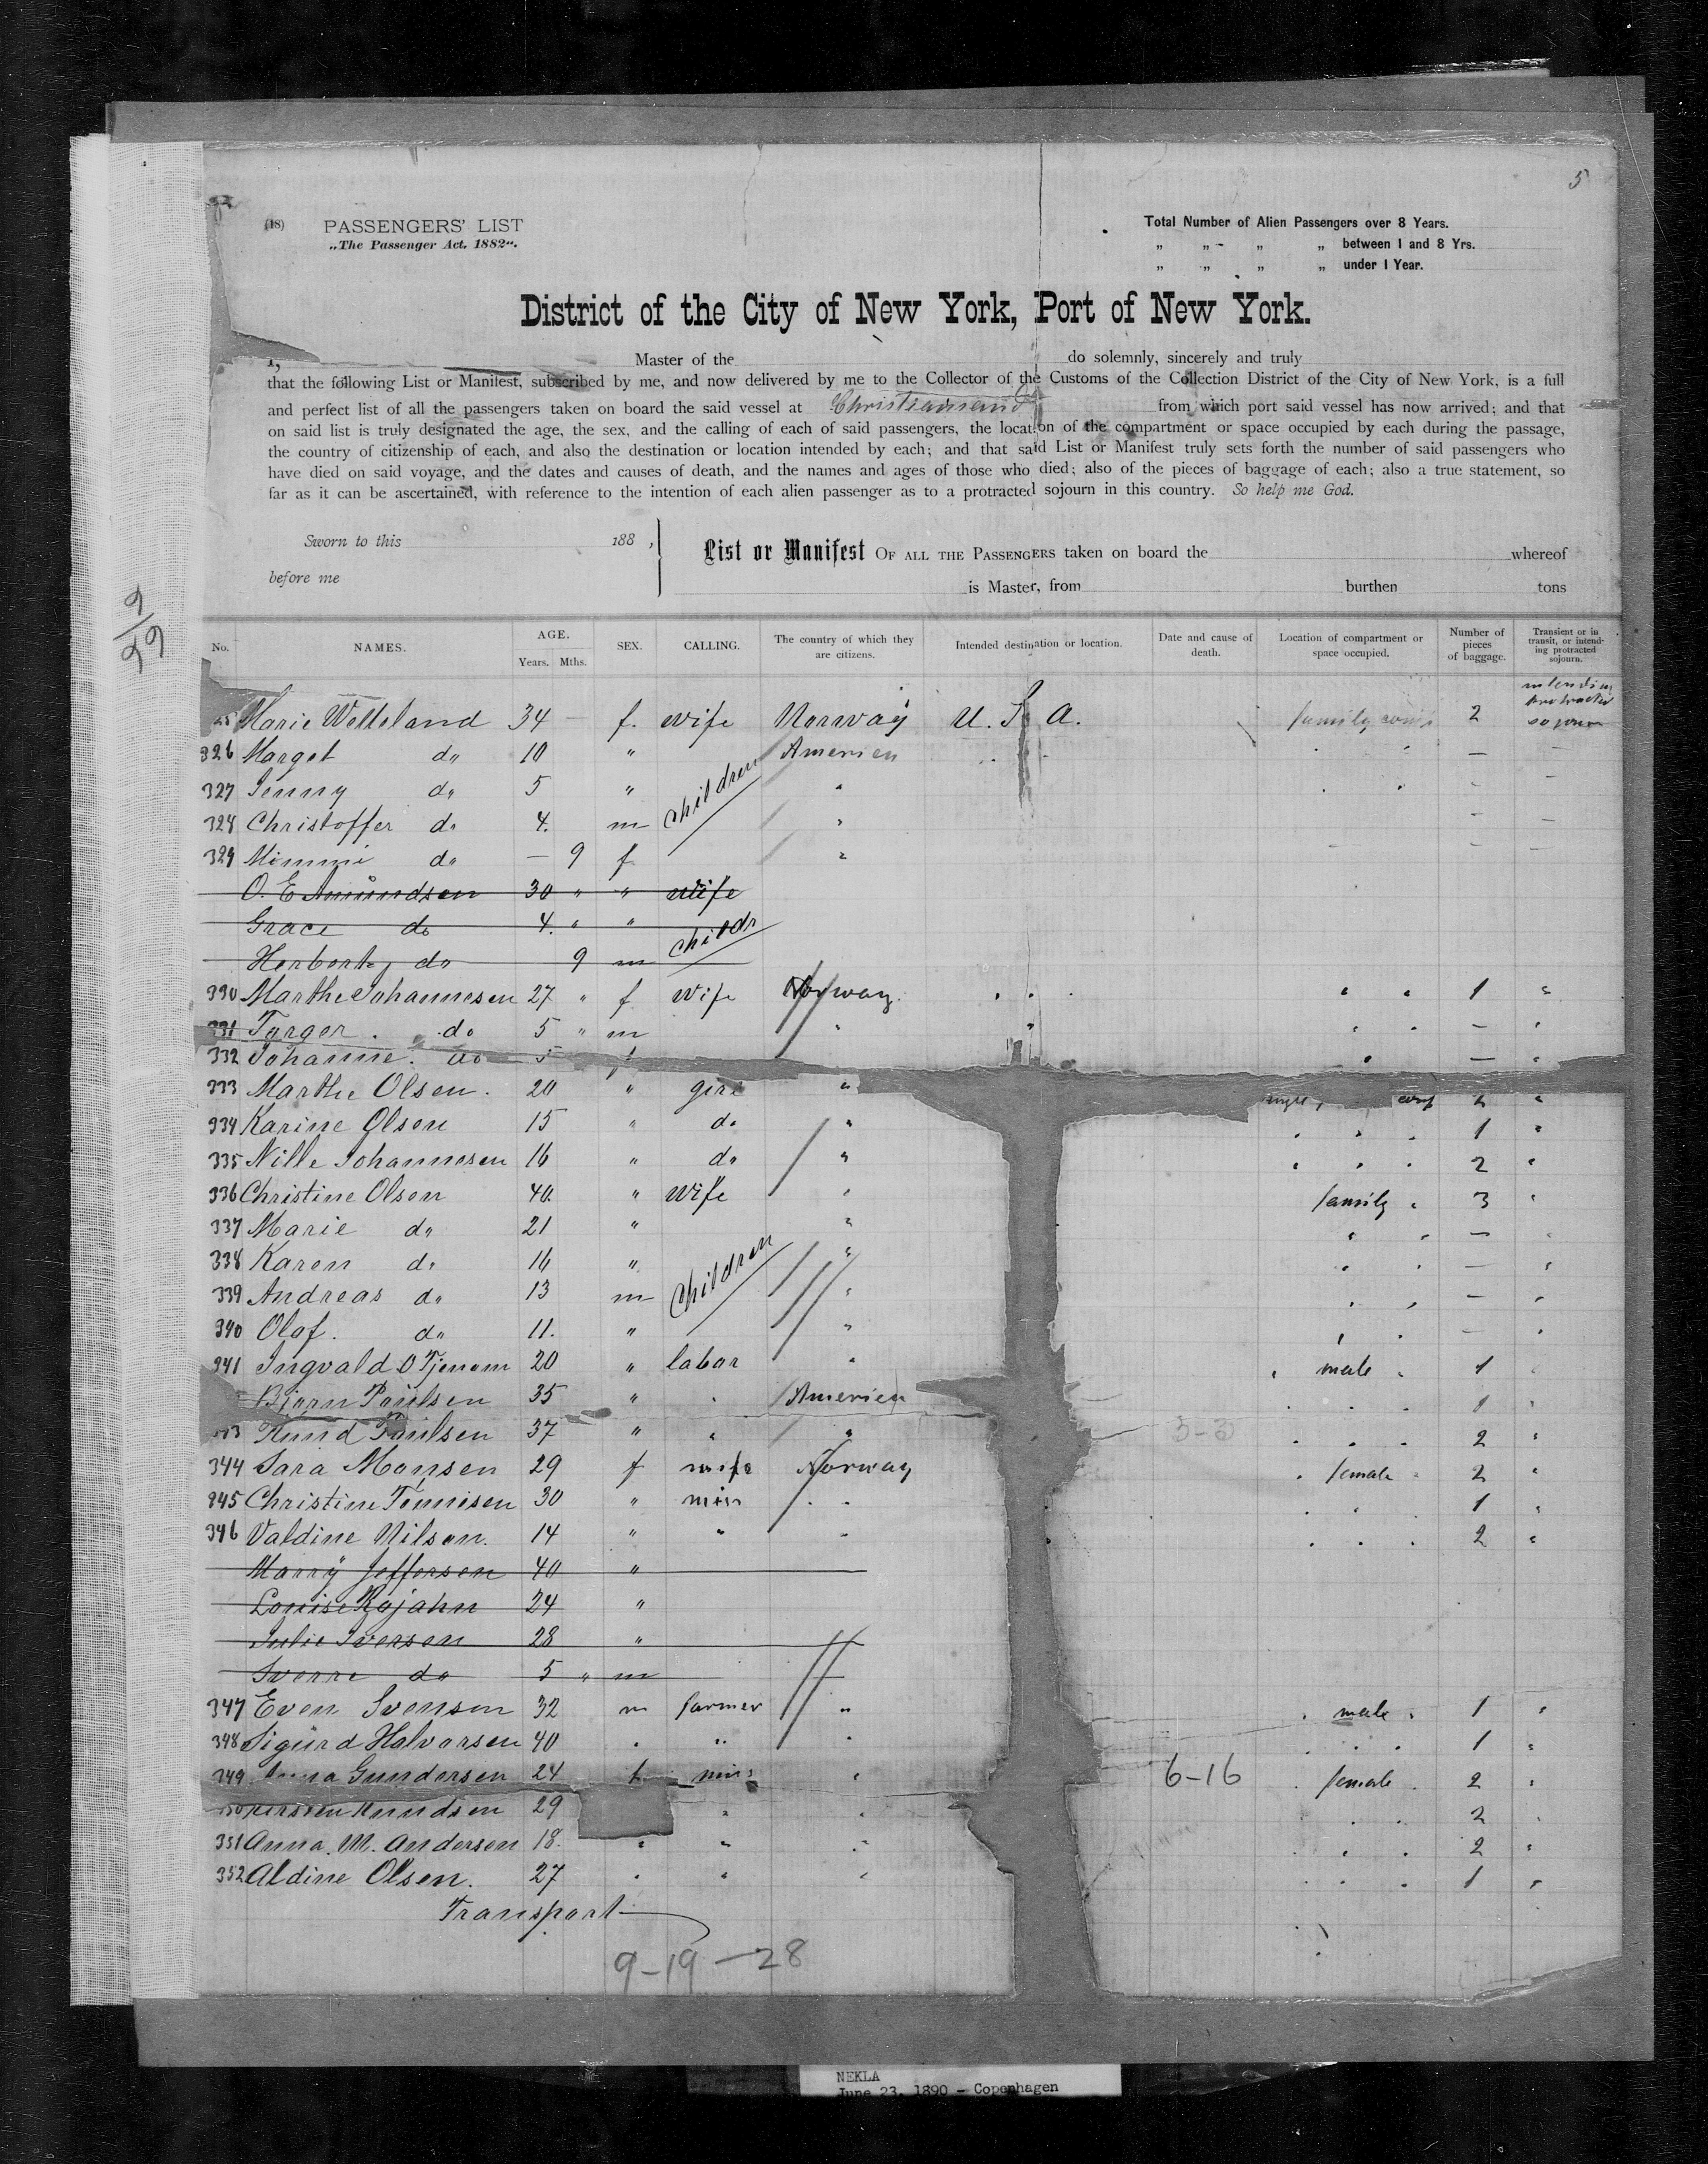 5
(18) PASSENGERS' LIST
„The Passenger Act, 1882“.
Total Number of Alien Passengers over 8 Years.
„ „ „ „ between 1 and 8 Yrs.
„ „ „ „ under 1 Year.
District of the City of New York, Port of New York.
I, Master of the do solemnly, sincerely and truly
that the following List or Manifest, subscribed by me, and now delivered by me to the Collector of the Customs of the Collection District of the City of New York, is a full
and perfect list of all the passengers taken on board the said vessel at Christiansand from which port said vessel has now arrived; and that
on said list is truly designated the age, the sex, and the calling of each of said passengers, the location of the compartment or space occupied by each during the passage,
the country of citizenship of each, and also the destination or location intended by each; and that said List or Manifest truly sets forth the number of said passengers who
have died on said voyage, and the dates and causes of death, and the names and ages of those who died; also of the pieces of baggage of each; also a true statement, so
far as it can be ascertained, with reference to the intention of each alien passenger as to a protracted sojourn in this country. So help me God.
Sworn to this 188 ,
before me
List or Manifest OF ALL THE PASSENGERS taken on board the whereof
is Master, from burthen tons
No. NAMES. AGE. Years. Mths. SEX. CALLING. The country of which they are citizens. Intended destination or location. Date and cause of death. Location of compartment or space occupied. Number of pieces of baggage. Transient or in transit, or intending protracted sojourn.
25 Marie Welleland 34 — f. wife Norway U. S. A. family 2 intending protracted sojourn
326 Margot do 10 " children America — —
327 Jenny do 5 " " - —
328 Christoffer do 4. m " - —
329 Mimmi do — 9 f " - —
O. E. Amundsen 30 " " wife
Grace do 4. " " childr
Herbort do 9 m
330 Marthe Johannesen 27 " f wife Norway . . . " " 1 "
331 Torger do 5 " m " " " — "
332 Johanne do 5 f " — "
333 Marthe Olsen. 20 " girl " 2 "
334 Karine Olsen 15 " do " " " " 1 "
335 Nille Johannesen 16 " do " " " " 2 "
336 Christine Olsen 40. " wife " family " 3 "
337 Marie do 21 " " " " — "
338 Karen do 16 " children " " " — "
339 Andreas do 13 m " " " — "
340 Olaf. do 11. " " " " — "
341 Ingvald O Tjenom 20 " labor " " male " 1 "
Bjorn Paulsen 35 " " America " " " 1 "
Knud Paulsen 37 " " " 3-3 " " " 2 "
344 Sara Monsen 29 f wife Norway " female " 2 "
345 Christine Tonnisen 30 " miss " " " 1 "
346 Valdine Nilsen. 14 " " " " " " 2 "
Marry Jefferson 40 "
Louise Rojahn 24 "
Julie Iversen 28 "
Sverre do 5 " m
347 Even Svensen 32 m farmer " " male " 1 "
348 Sigurd Halvorsen 40 " " " " " " 1 "
349 Anna Gundersen 24 f miss " 6-16 " female " 2 "
Knudsen 29 " " " " 2 "
351 Anna. M. Andersen 18. " " " " " 2 "
352 Aldine Olsen. 27 " " " " " " 1 "
Transport
9-19-28
NEKLA
June 23, 1890 - Copenhagen